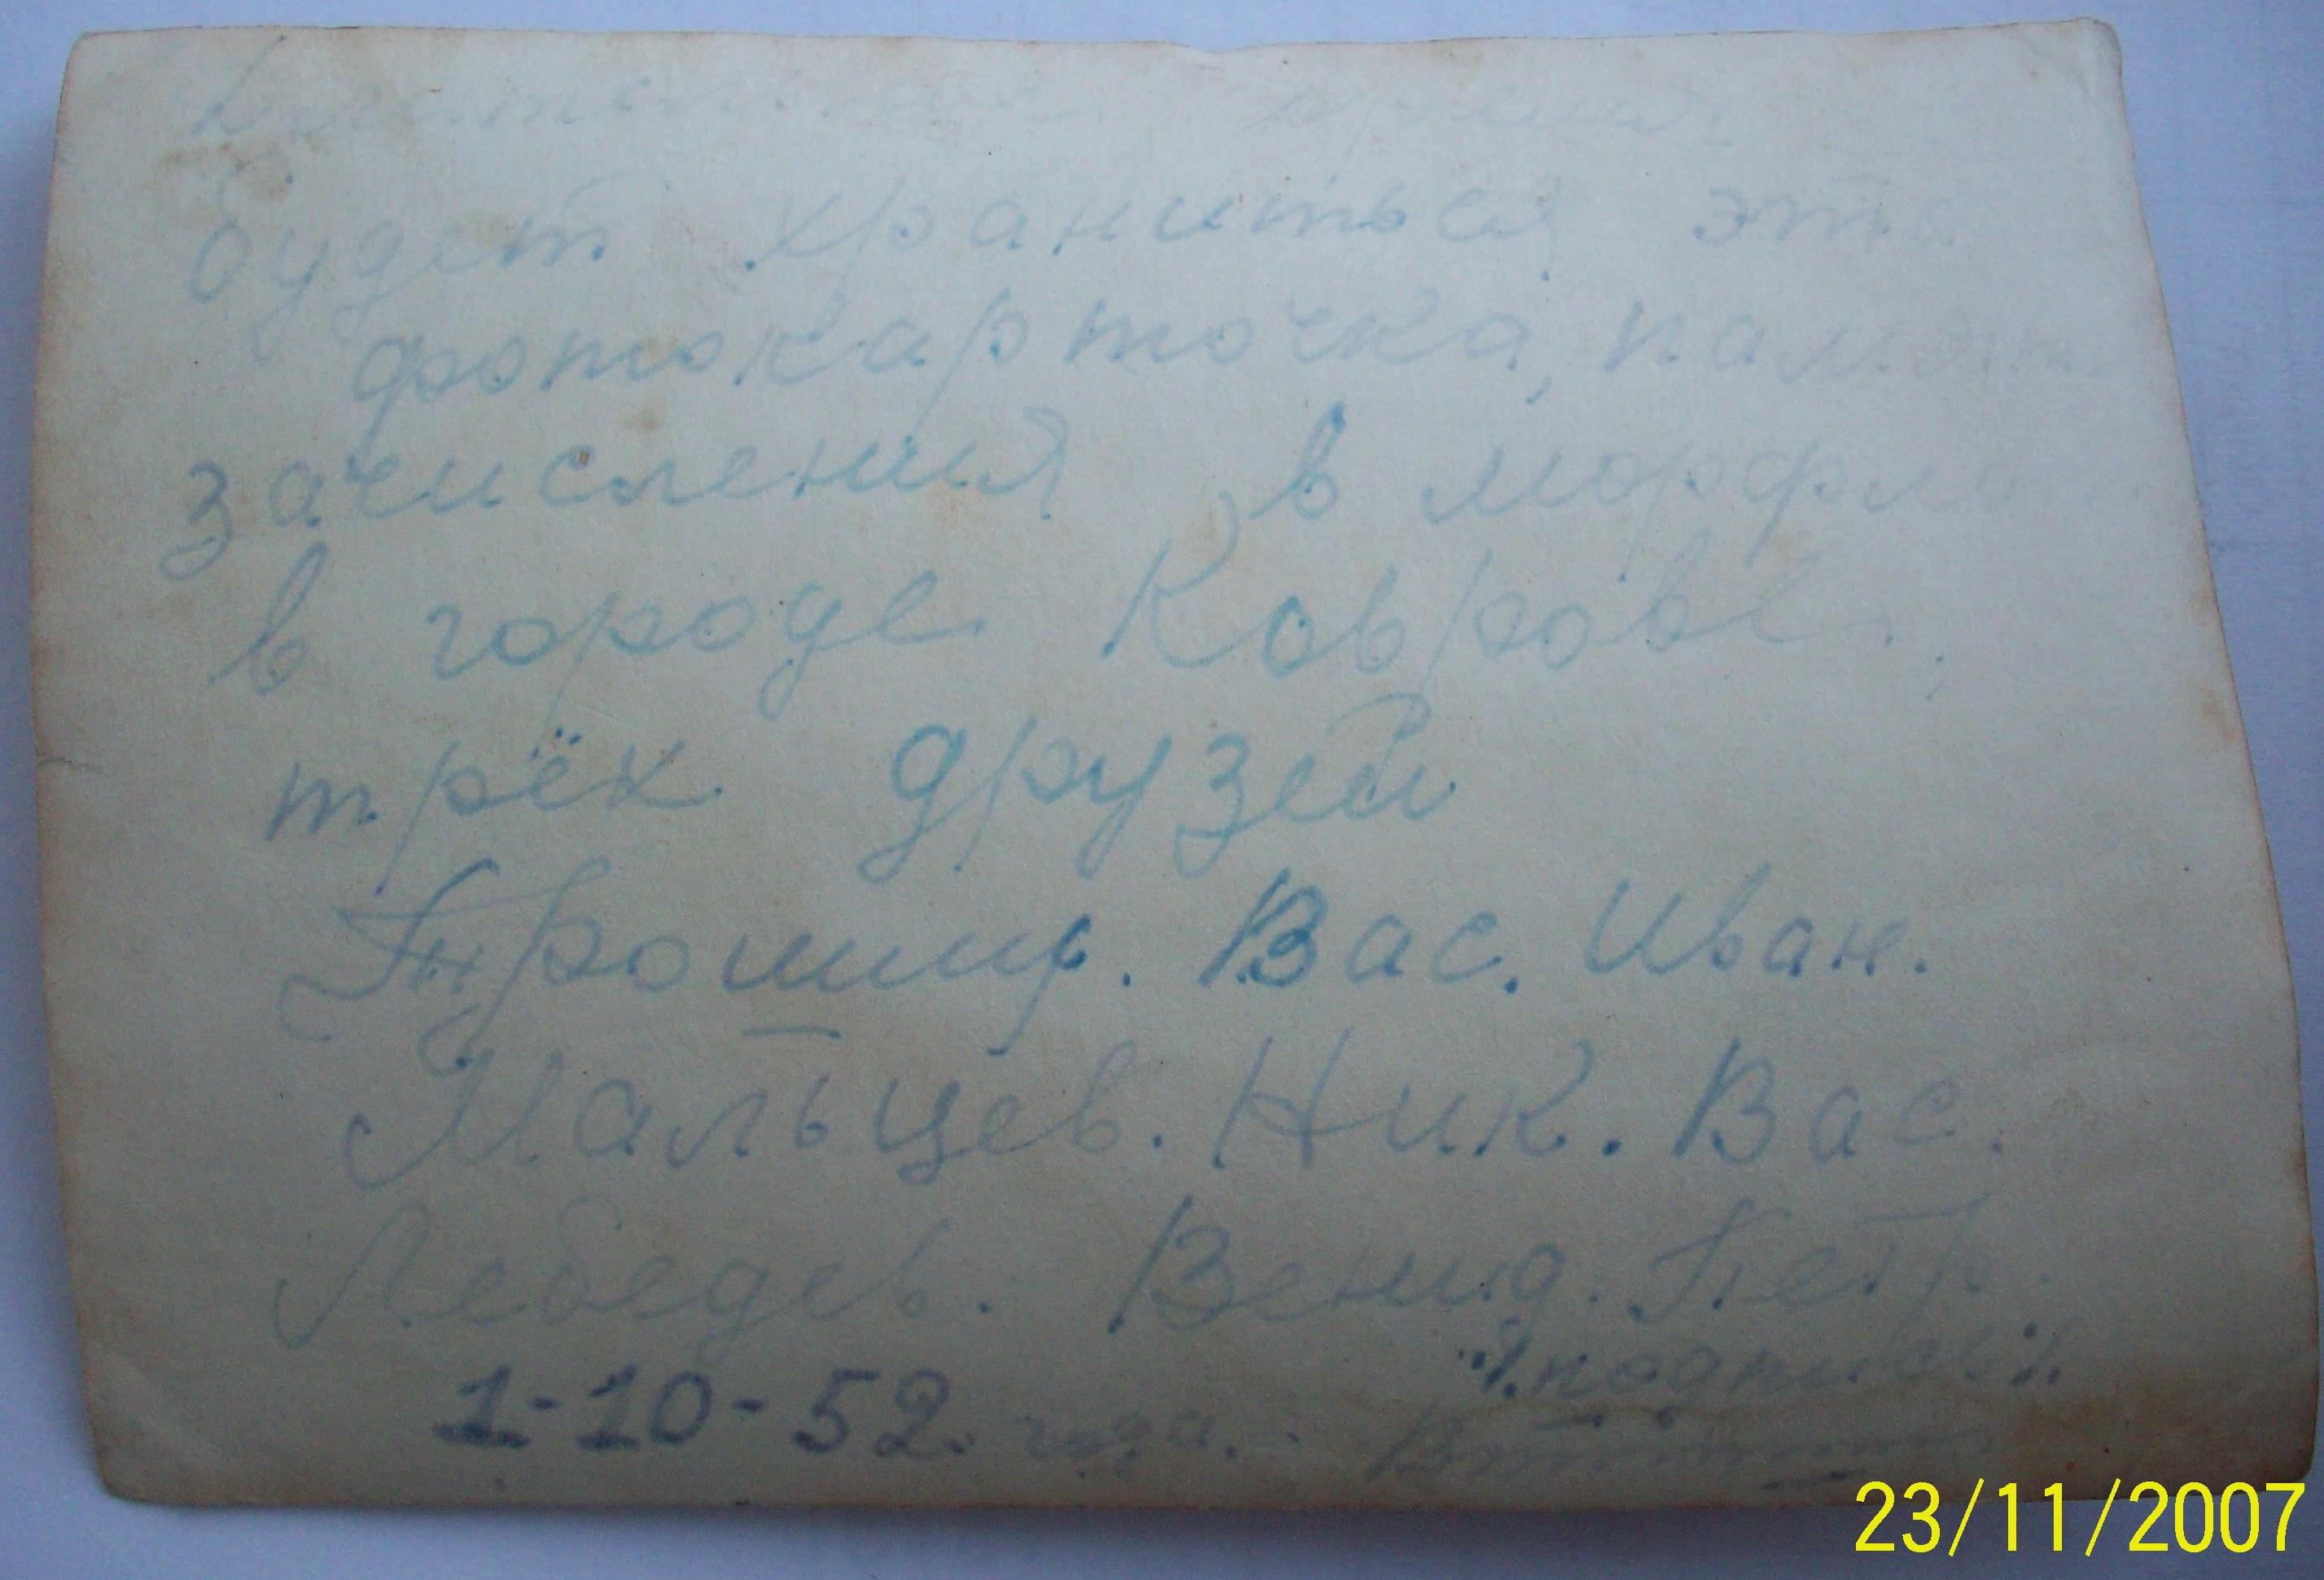 Длительное время
будет храниться эта
фотокарточка, память
зачисления в морфло
в городе Коврове.,
трёх друзей
Трошин. Вас. Иван.
Мальцев. Ник. Вас.
Лебедев. Венид. Петр.
подпись
1-10-52. года.
23/11/2007